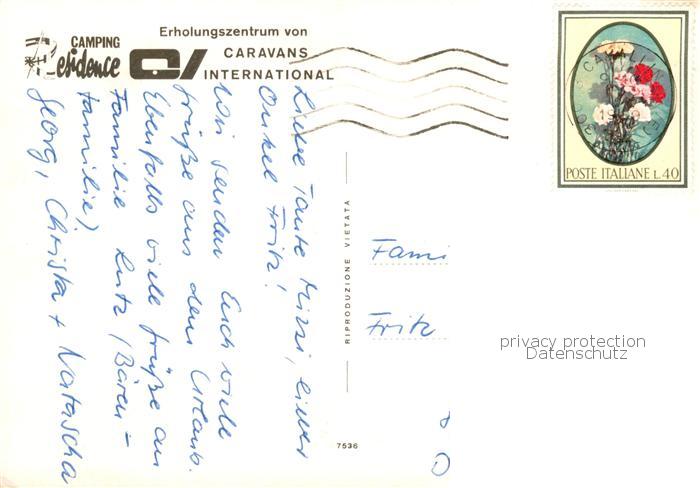 CAMPING
Residence
Erholungszentrum von
CARAVANS
INTERNATIONAL
POSTE ITALIANE L.40
Liebe Tante Mizzi, lieber
Onkel Fritz!
Wir senden Euch viele
Grüße aus dem Urlaub.
Ebenfalls viele Grüße an
Familie Lutz (Bären-
familie)
Georg, Christa + Natascha
RIPRODUZIONE VIETATA
Fami
Fritz
privacy protection
Datenschutz
7536